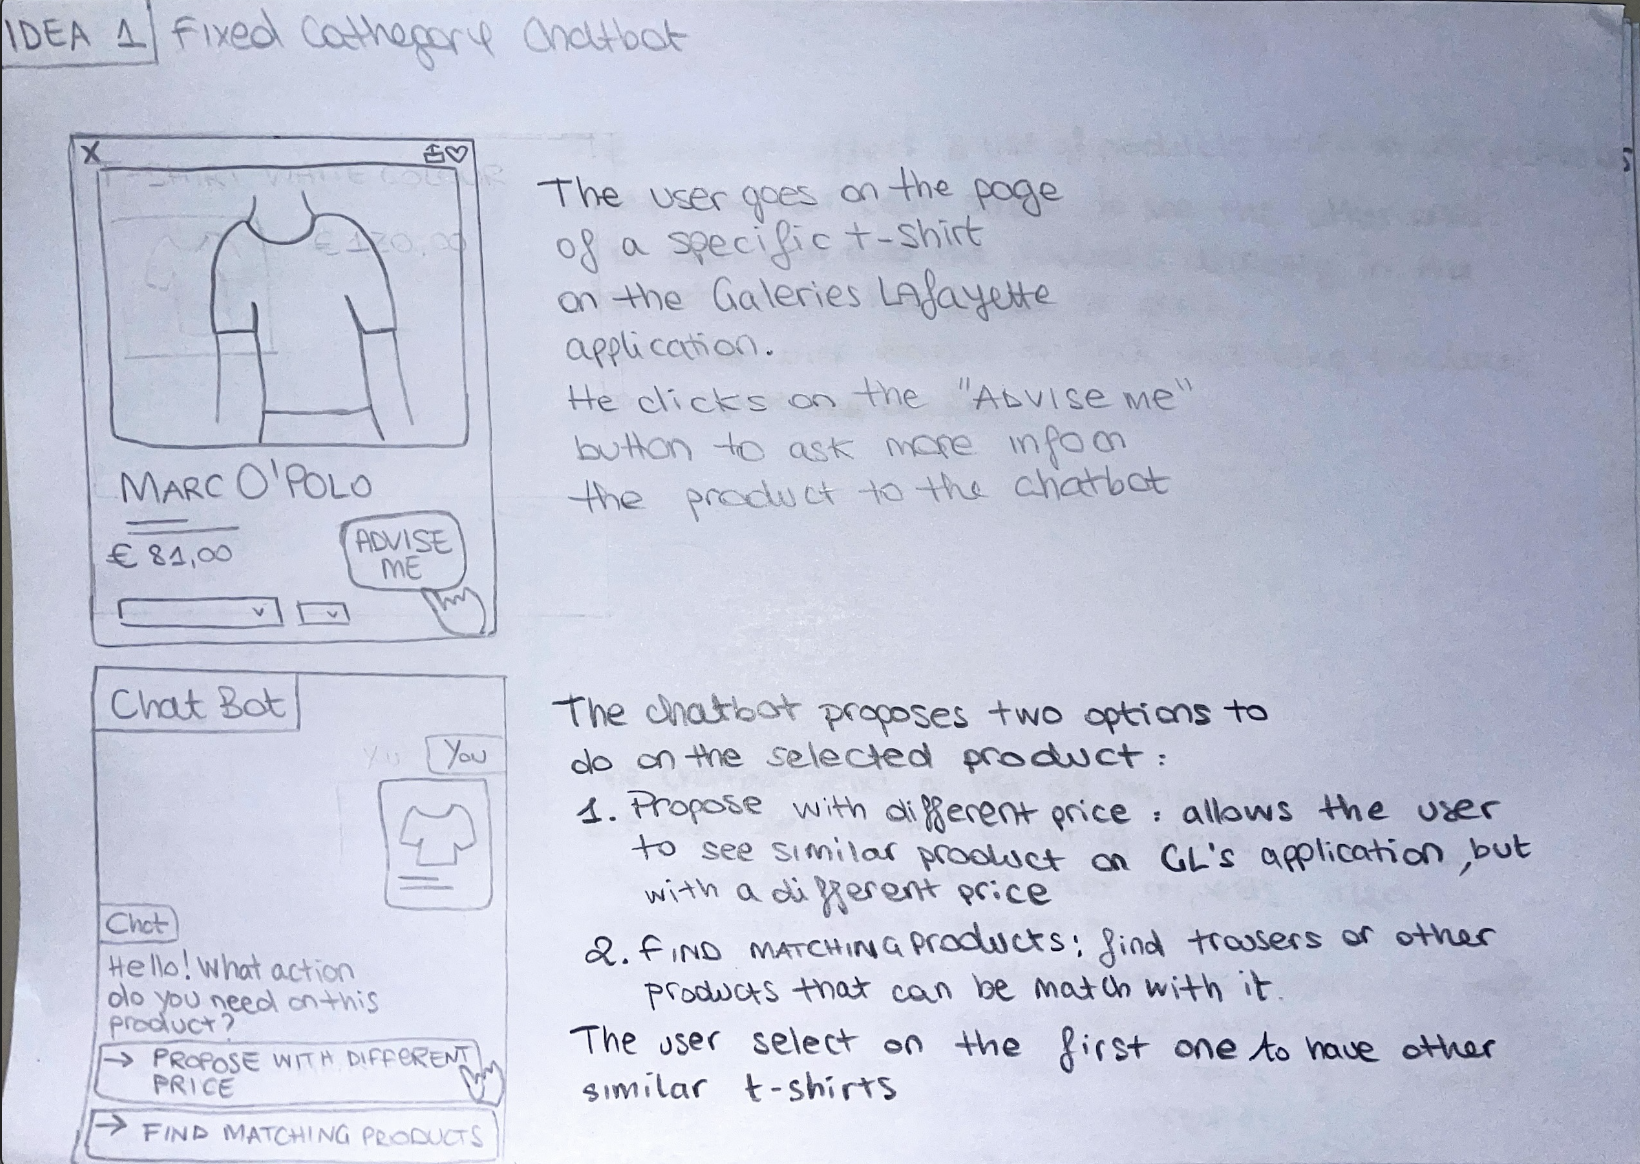 IDEA 1 Fixed Cathegory Chatbot
X
MARC O'POLO
€ 81,00
ADVISE
ME
The user goes on the page
of a specific t-shirt
on the Galeries LAfayette
application.
He clicks on the "ADVISE ME"
button to ask more info on
the product to the chatbot
Chat Bot
You
Chat
Hello! What action
do you need on this
product?
→ PROPOSE WITH DIFFERENT
PRICE
→ FIND MATCHING PRODUCTS
The chatbot proposes two options to
do on the selected product:
1. Propose with different price: allows the user
to see similar product on GL's application, but
with a different price
2. FIND MATCHING products: find trousers or other
products that can be match with it.
The user select on the first one to have other
similar t-shirts